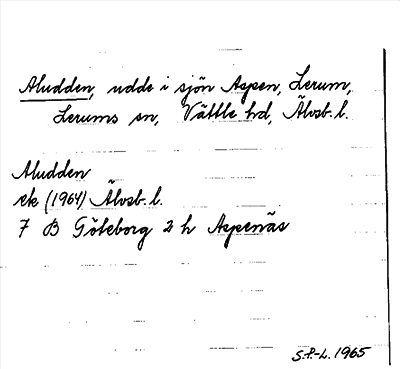 Aludden, udde i sjön Aspen, Lerum,
Lerums sn, Vättle hd, Älvsb. l.
Aludden
ek (1964) Älvsb. l.
7 B Göteborg 2 h Aspenäs
S.P.-L. 1965